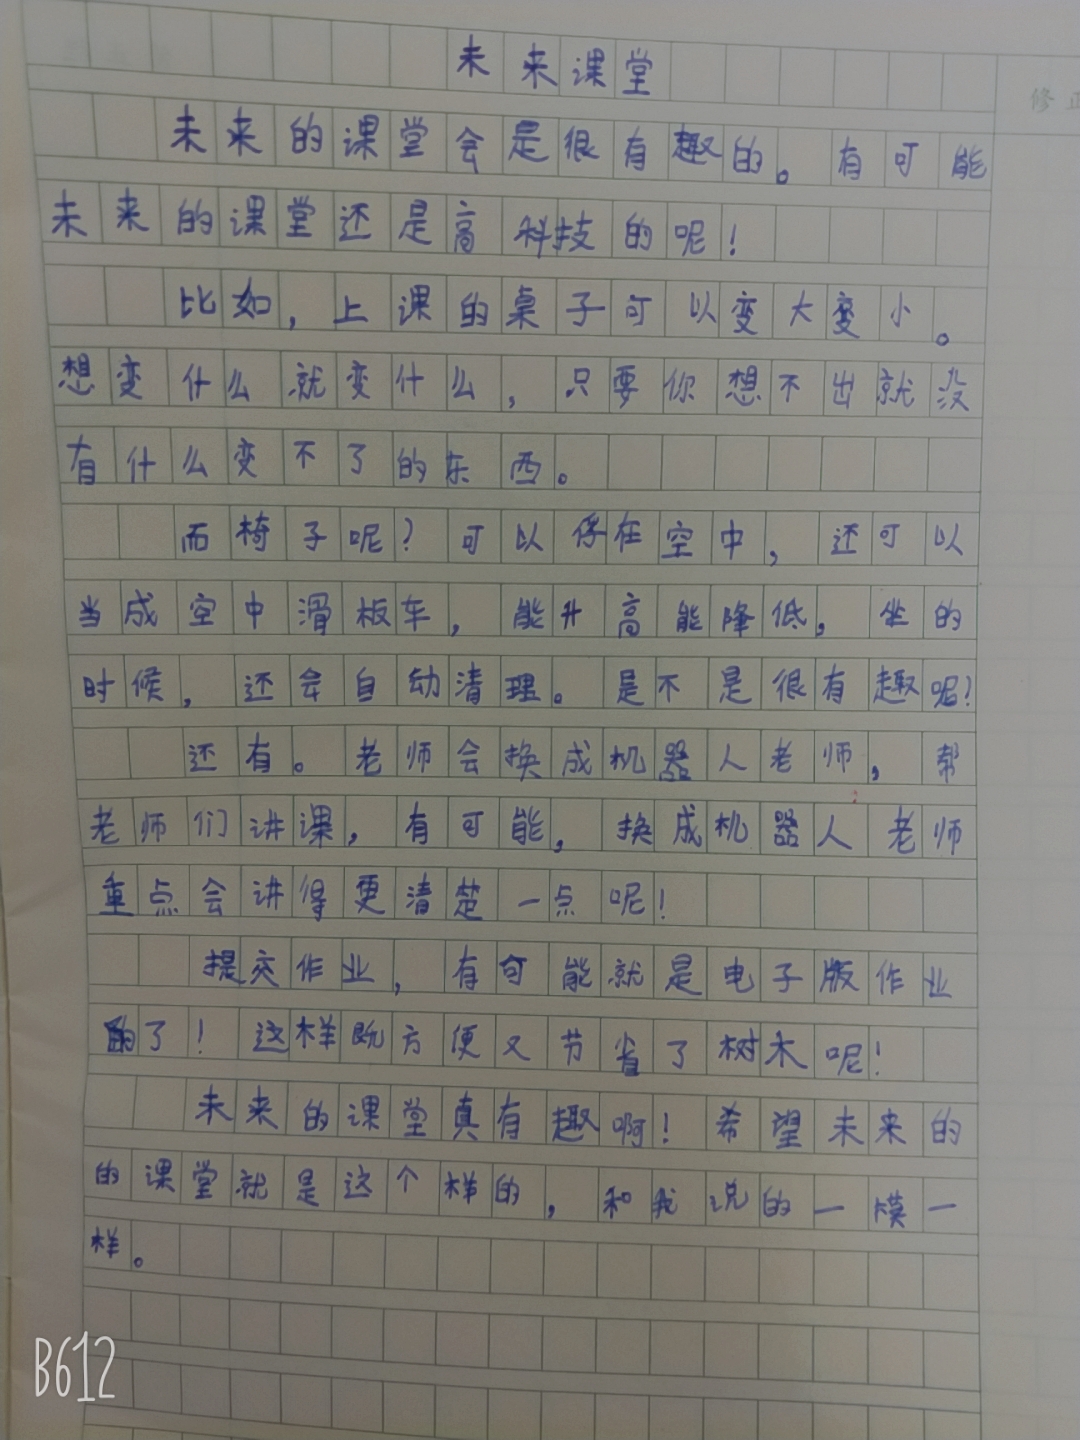 未来课堂
修正
未来的课堂会是很有趣的。有可能
未来的课堂还是高科技的呢！
比如，上课的桌子可以变大变小。
想变什么就变什么，只要你想不出就没
有什么变不了的东西。
而椅子呢？可以俘在空中，还可以
当成空中滑板车，能升高能降低，坐的
时候，还会自动清理。是不是很有趣呢？
还有。老师会换成机器人老师，帮
老师们讲课，有可能，换成机器人老师
重点会讲得更清楚一点呢！
提交作业，有可能就是电子版作业
了！这样既方便又节省了树木呢！
未来的课堂真有趣啊！希望未来的
的课堂就是这个样的，和我说的一模一
样。
B612